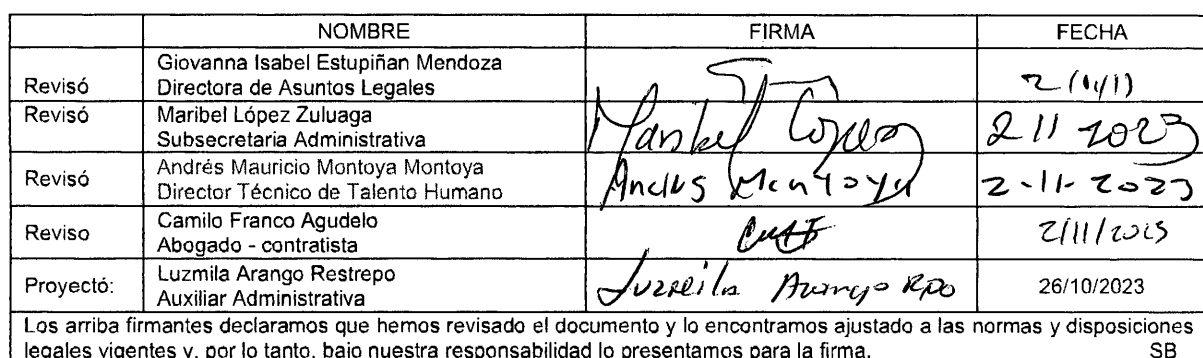 NOMBRE FIRMA FECHA
Giovanna Isabel Estupiñan Mendoza
Revisó Directora de Asuntos Legales
Revisó Maribel López Zuluaga
Subsecretaria Administrativa Maribel López 2 11 2023
Andrés Mauricio Montoya Montoya
Revisó Director Técnico de Talento Humano Andrés Montoya 2-11-2023
Camilo Franco Agudelo
Reviso Abogado - contratista 2/11/2023
Luzmila Arango Restrepo
Proyectó: Auxiliar Administrativa Luzmila Arango Rpo 26/10/2023
Los arriba firmantes declaramos que hemos revisado el documento y lo encontramos ajustado a las normas y disposiciones
legales vigentes y, por lo tanto, bajo nuestra responsabilidad lo presentamos para la firma. SB